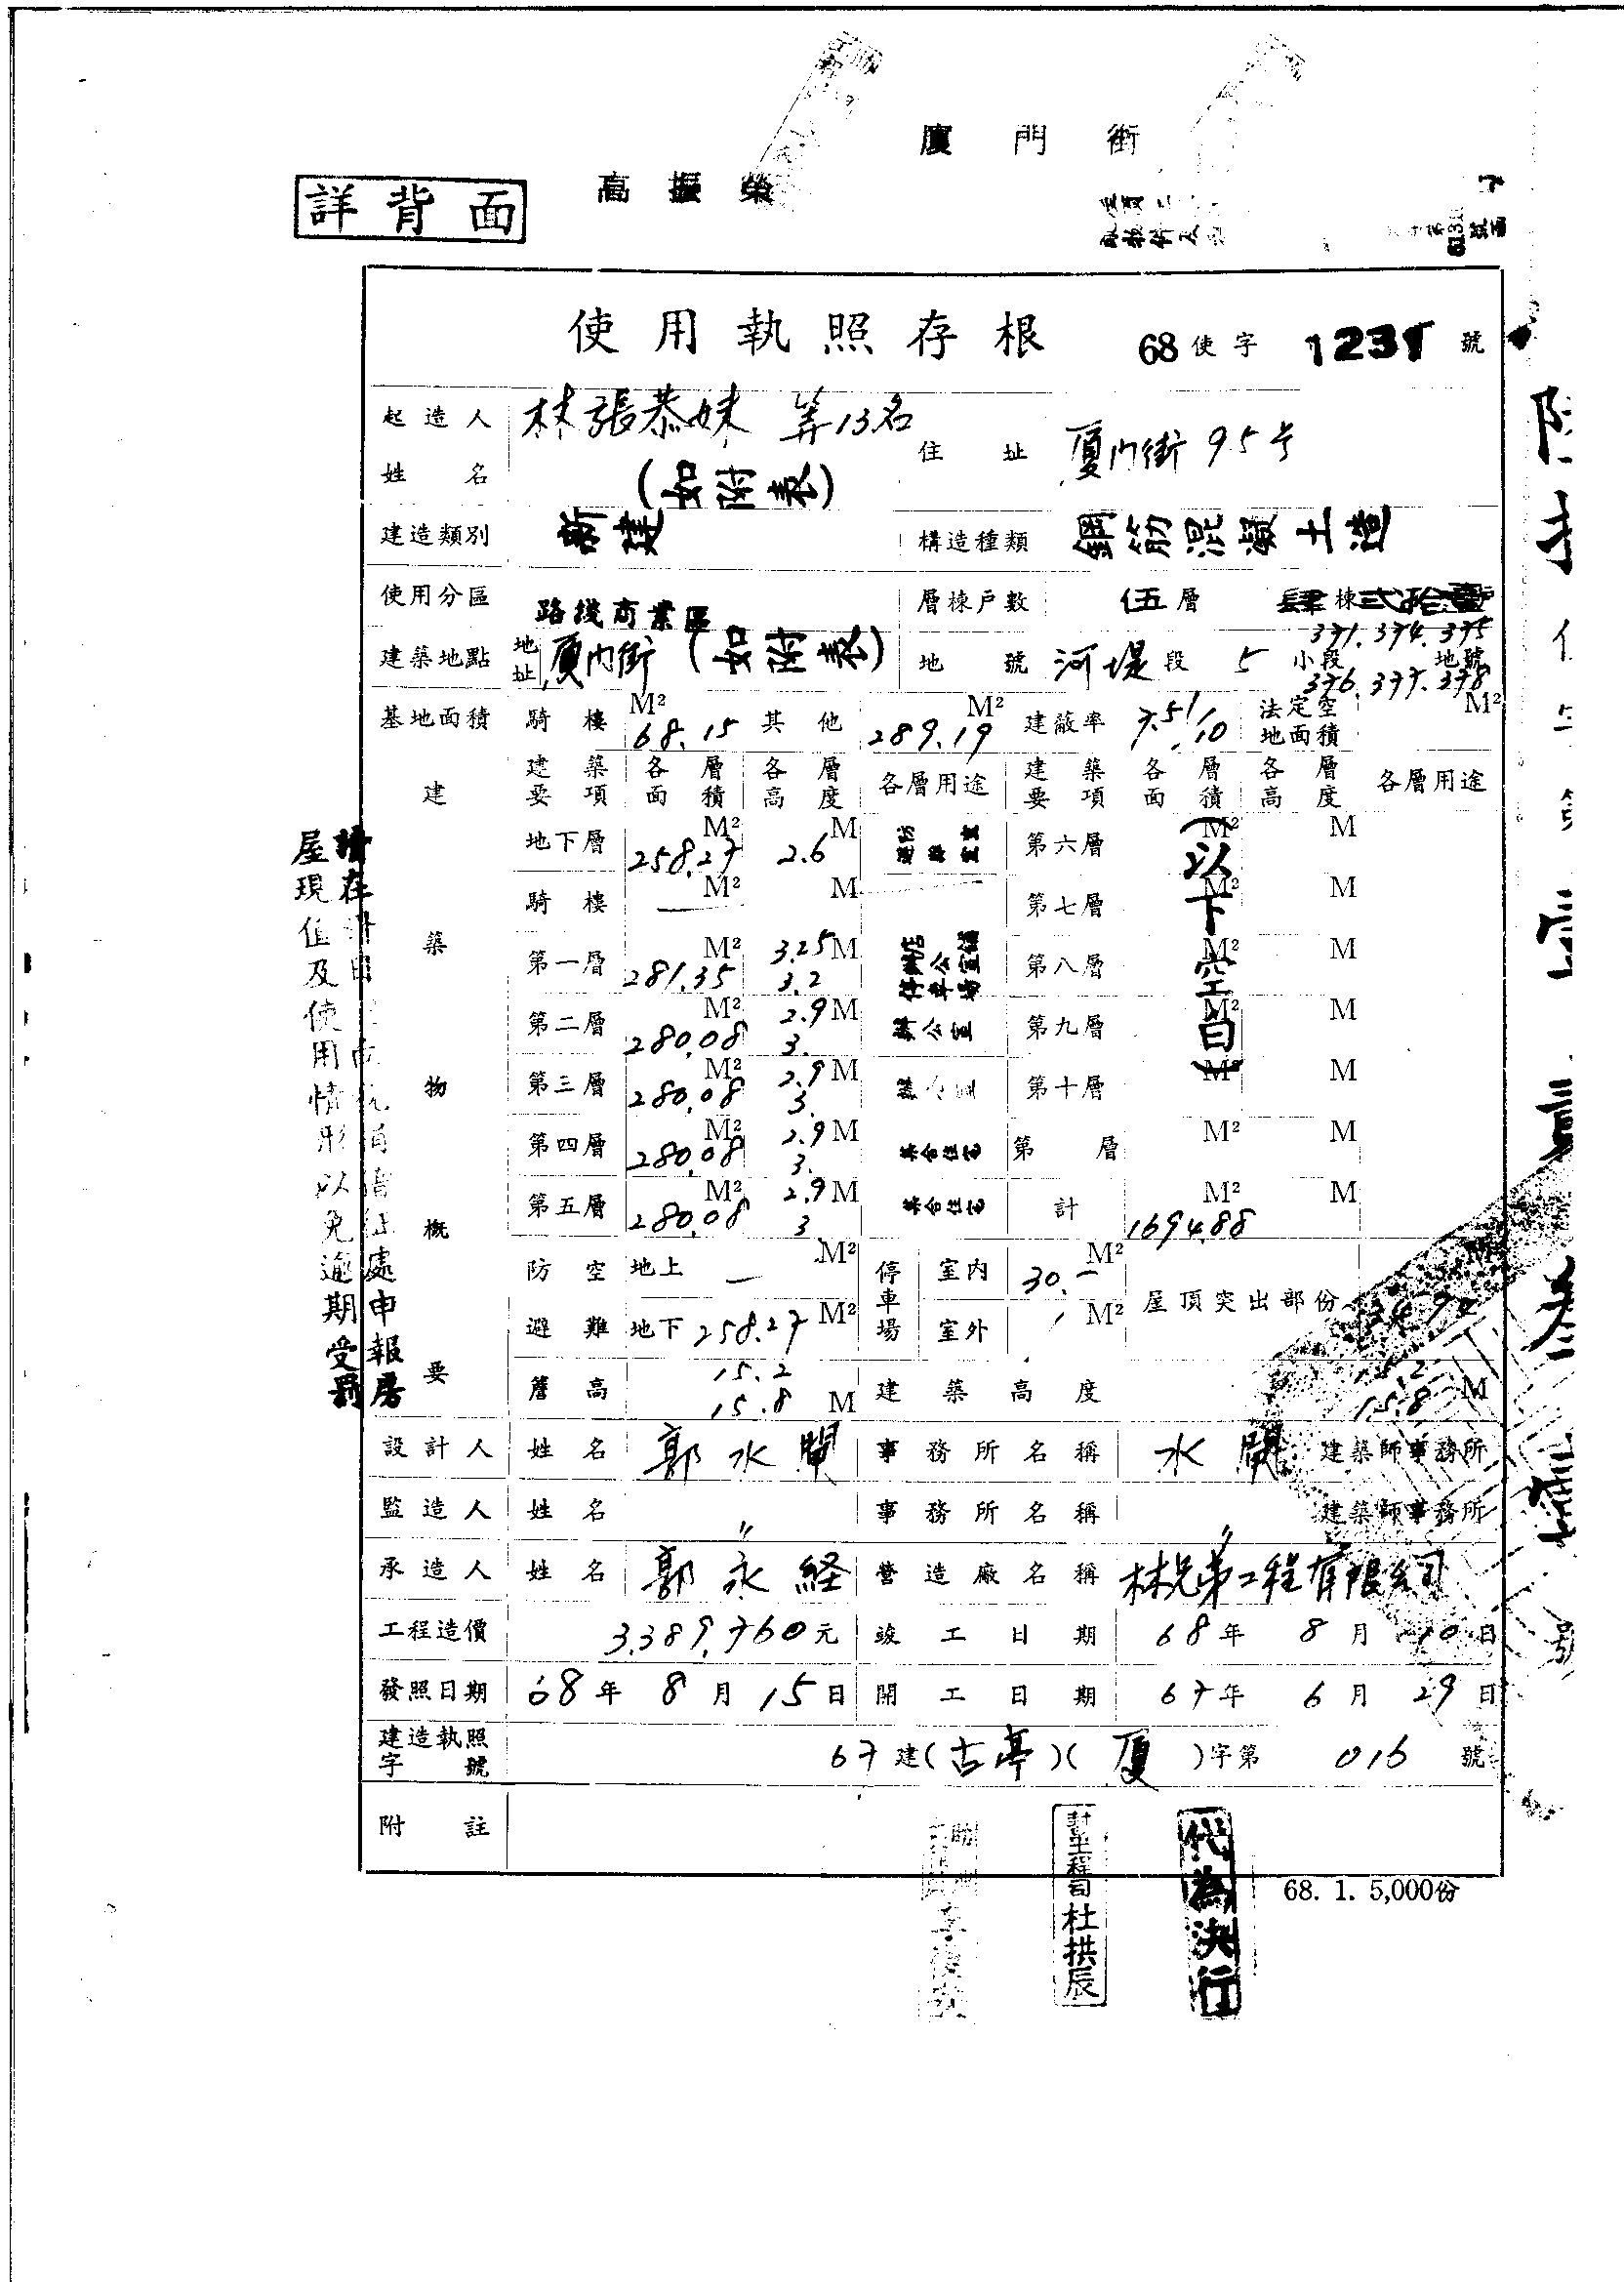 廈門街
高振榮
詳背面
使用執照存根 68使字 1231 號
起造人姓名 林張恭妹 等13名 (如附表) 住址 厦门街95号
建造類別 新建 構造種類 鋼筋混凝土造
使用分區 路綫商業區 層棟戶數 伍層 肆棟弍拾壹
建築地點 地址 厦门街(如附表) 地號 河堤段 5小段 371.374.375 376.377.378 地號
基地面積 騎樓 68.15 M² 其他 289.19 M² 建蔽率 7.51/10 法定空地面積 M²
建築物概要
建築要項 各層面積 各層高度 各層用途 建築要項 各層面積 各層高度 各層用途
地下層 258.27 M² 2.6 M 第六層 M² M
騎樓 — M² M 第七層 M² M
第一層 281.35 M² 3.25 3.2 M 第八層 M² M
第二層 280.08 M² 2.9 3. M 辦公室 第九層 M² M
第三層 280.08 M² 2.9 3. M 第十層 M² M
第四層 280.08 M² 2.9 3. M 集合住宅 第 層 M² M
第五層 280.08 M² 2.9 3 M 集合住宅 計 1694.88 M² M
(以下空白)
防空避難 地上 — M² 停車場 室內 30.- M² 屋頂突出部份
地下 258.27 M² 室外 / M²
簷高 15.2 15.8 M 建築高度 15.2 15.8 M
設計人 姓名 郭水 事務所名稱 水 建築師事務所
監造人 姓名 〃 事務所名稱 〃 建築師事務所
承造人 姓名 郭永経 營造廠名稱 林兄弟工程有限公司
工程造價 3,389,760元 竣工日期 68年 8月 10日
發照日期 68年 8月 15日 開工日期 67年 6月 29日
建造執照字號 67建(古亭)(厦)字第 016 號
附註
68. 1. 5,000份
工程司杜拱辰
代為決行
處申報房
屋現值及使用情形以免逾期受罰